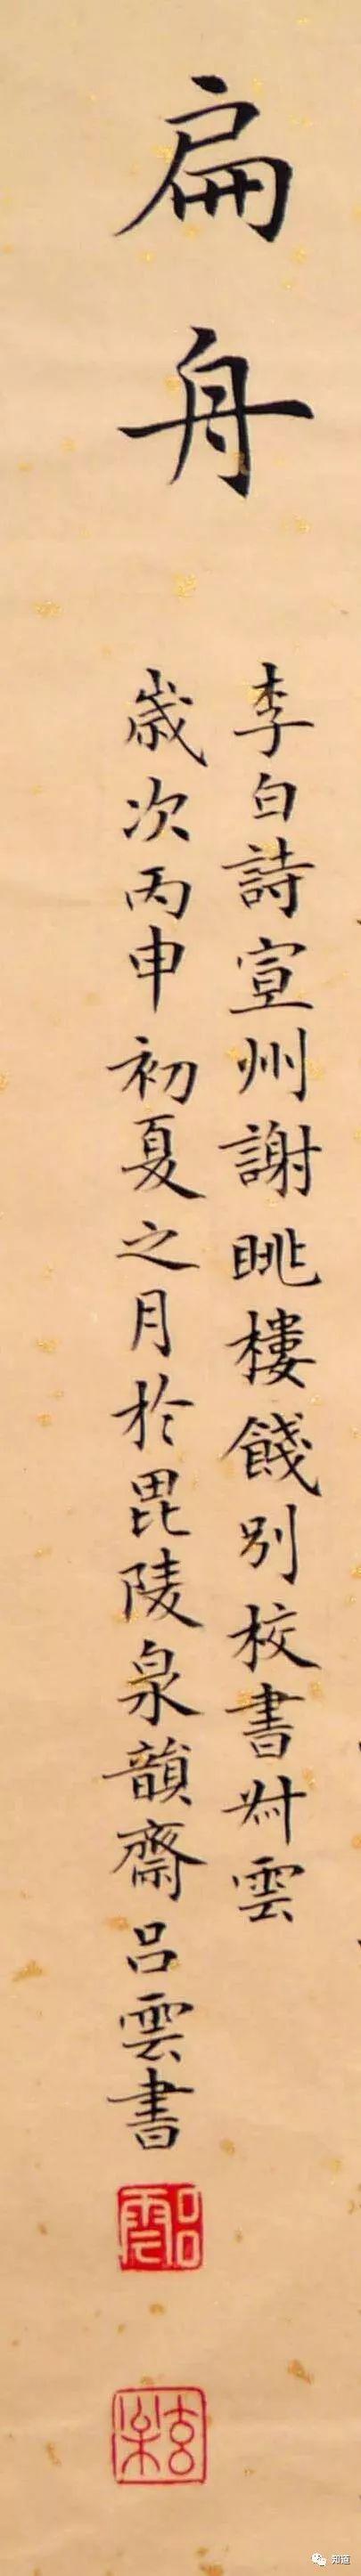 扁舟
李白詩宣州謝眺樓餞別校書叔雲
歲次丙申初夏之月於毘陵泉韻齋呂雲書
呂雲
知道